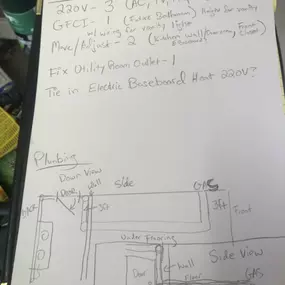 220V - 3 (AC,
GFCI - 1 (Future Bathroom) Height for vanity
w/ wiring for vanity light
Move/Adjust - 2 (Kitchen Wall/
Fix Utility Room Outlet - 1
Tie in Electric Baseboard Heat 220V?
Plumbing
Down View
Door
Wall
Side
GAS
3ft
3ft
Front
Under Flooring
Side View
Door
Wall
Floor
GAS